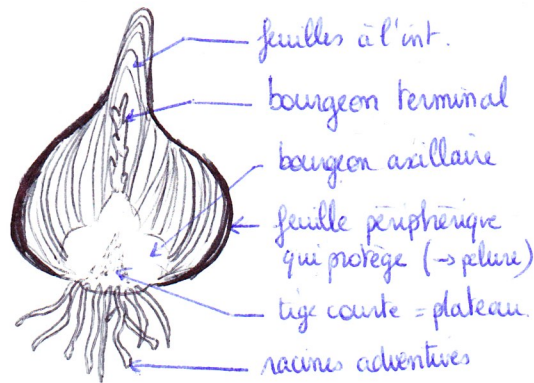 feuilles à l'int.
bourgeon terminal
bourgeon axillaire
feuille périphérique
qui protège (→ pelure)
tige courte = plateau.
racines adventives